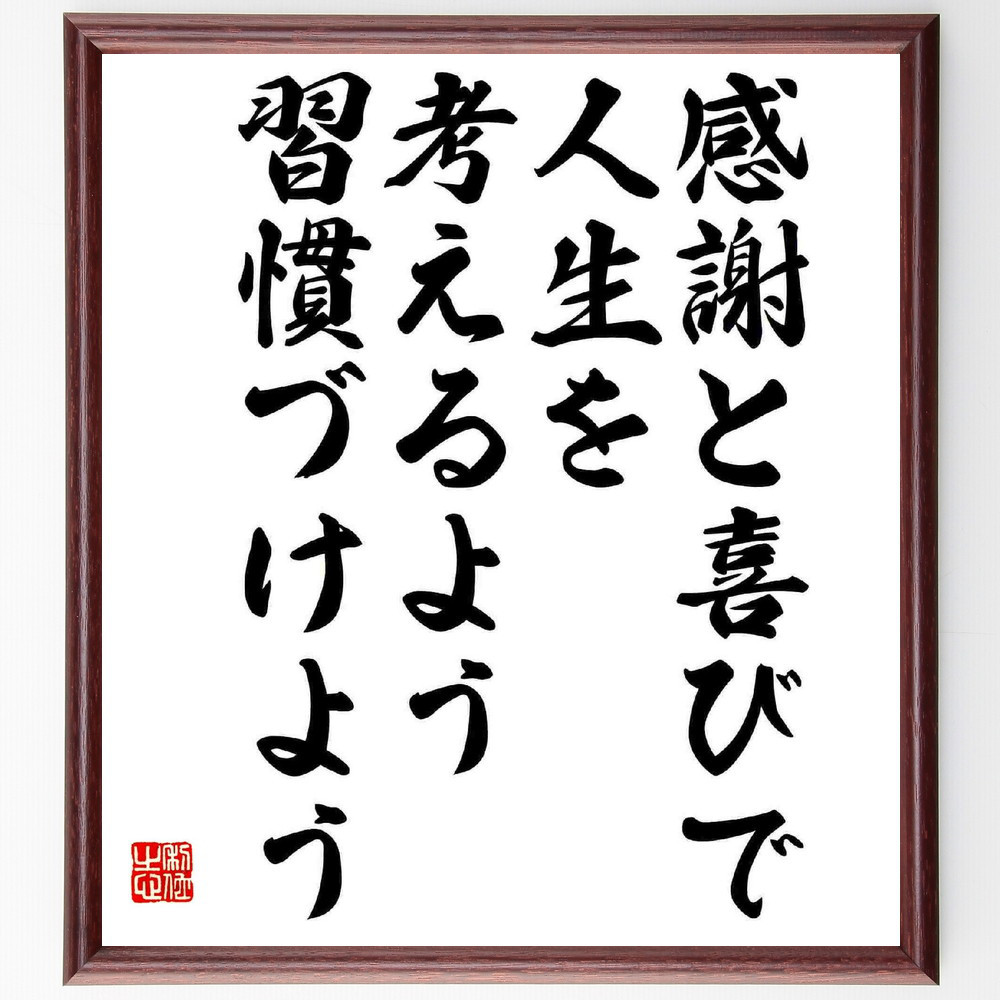 感謝と喜びで
人生を
考えるよう
習慣づけよう